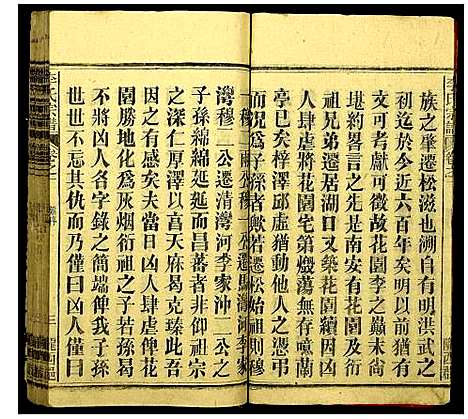 族之肇遷松滋也溯自有明洪武之
初迄於今近六百年矣明以前猶有
文可考獻可徵故花園李之巔末尚
堪約畧言之先是南安有花園及衍
祖兄弟遷居湖口又築花園續因凶
人肆虐將花園宅第燬蕩無存噫蘭
亭已矣梓澤邱虛猶動他人之憑弔
而况爲子孫者歟若遷松始祖則穆
灣穆二公遷清灣河李家沖二公之
子孫綿綿延延而昌蕃者非衍祖宗
之深仁厚澤以萬天庥曷克臻此吾
因之有感矣夫當日凶人肆虐俾花
園勝地化爲灰烟衍祖之子若孫曷
不將凶人名字錄之簡端俾我子孫
世世不忘其仇而乃僅曰凶人僅曰
李氏宗譜